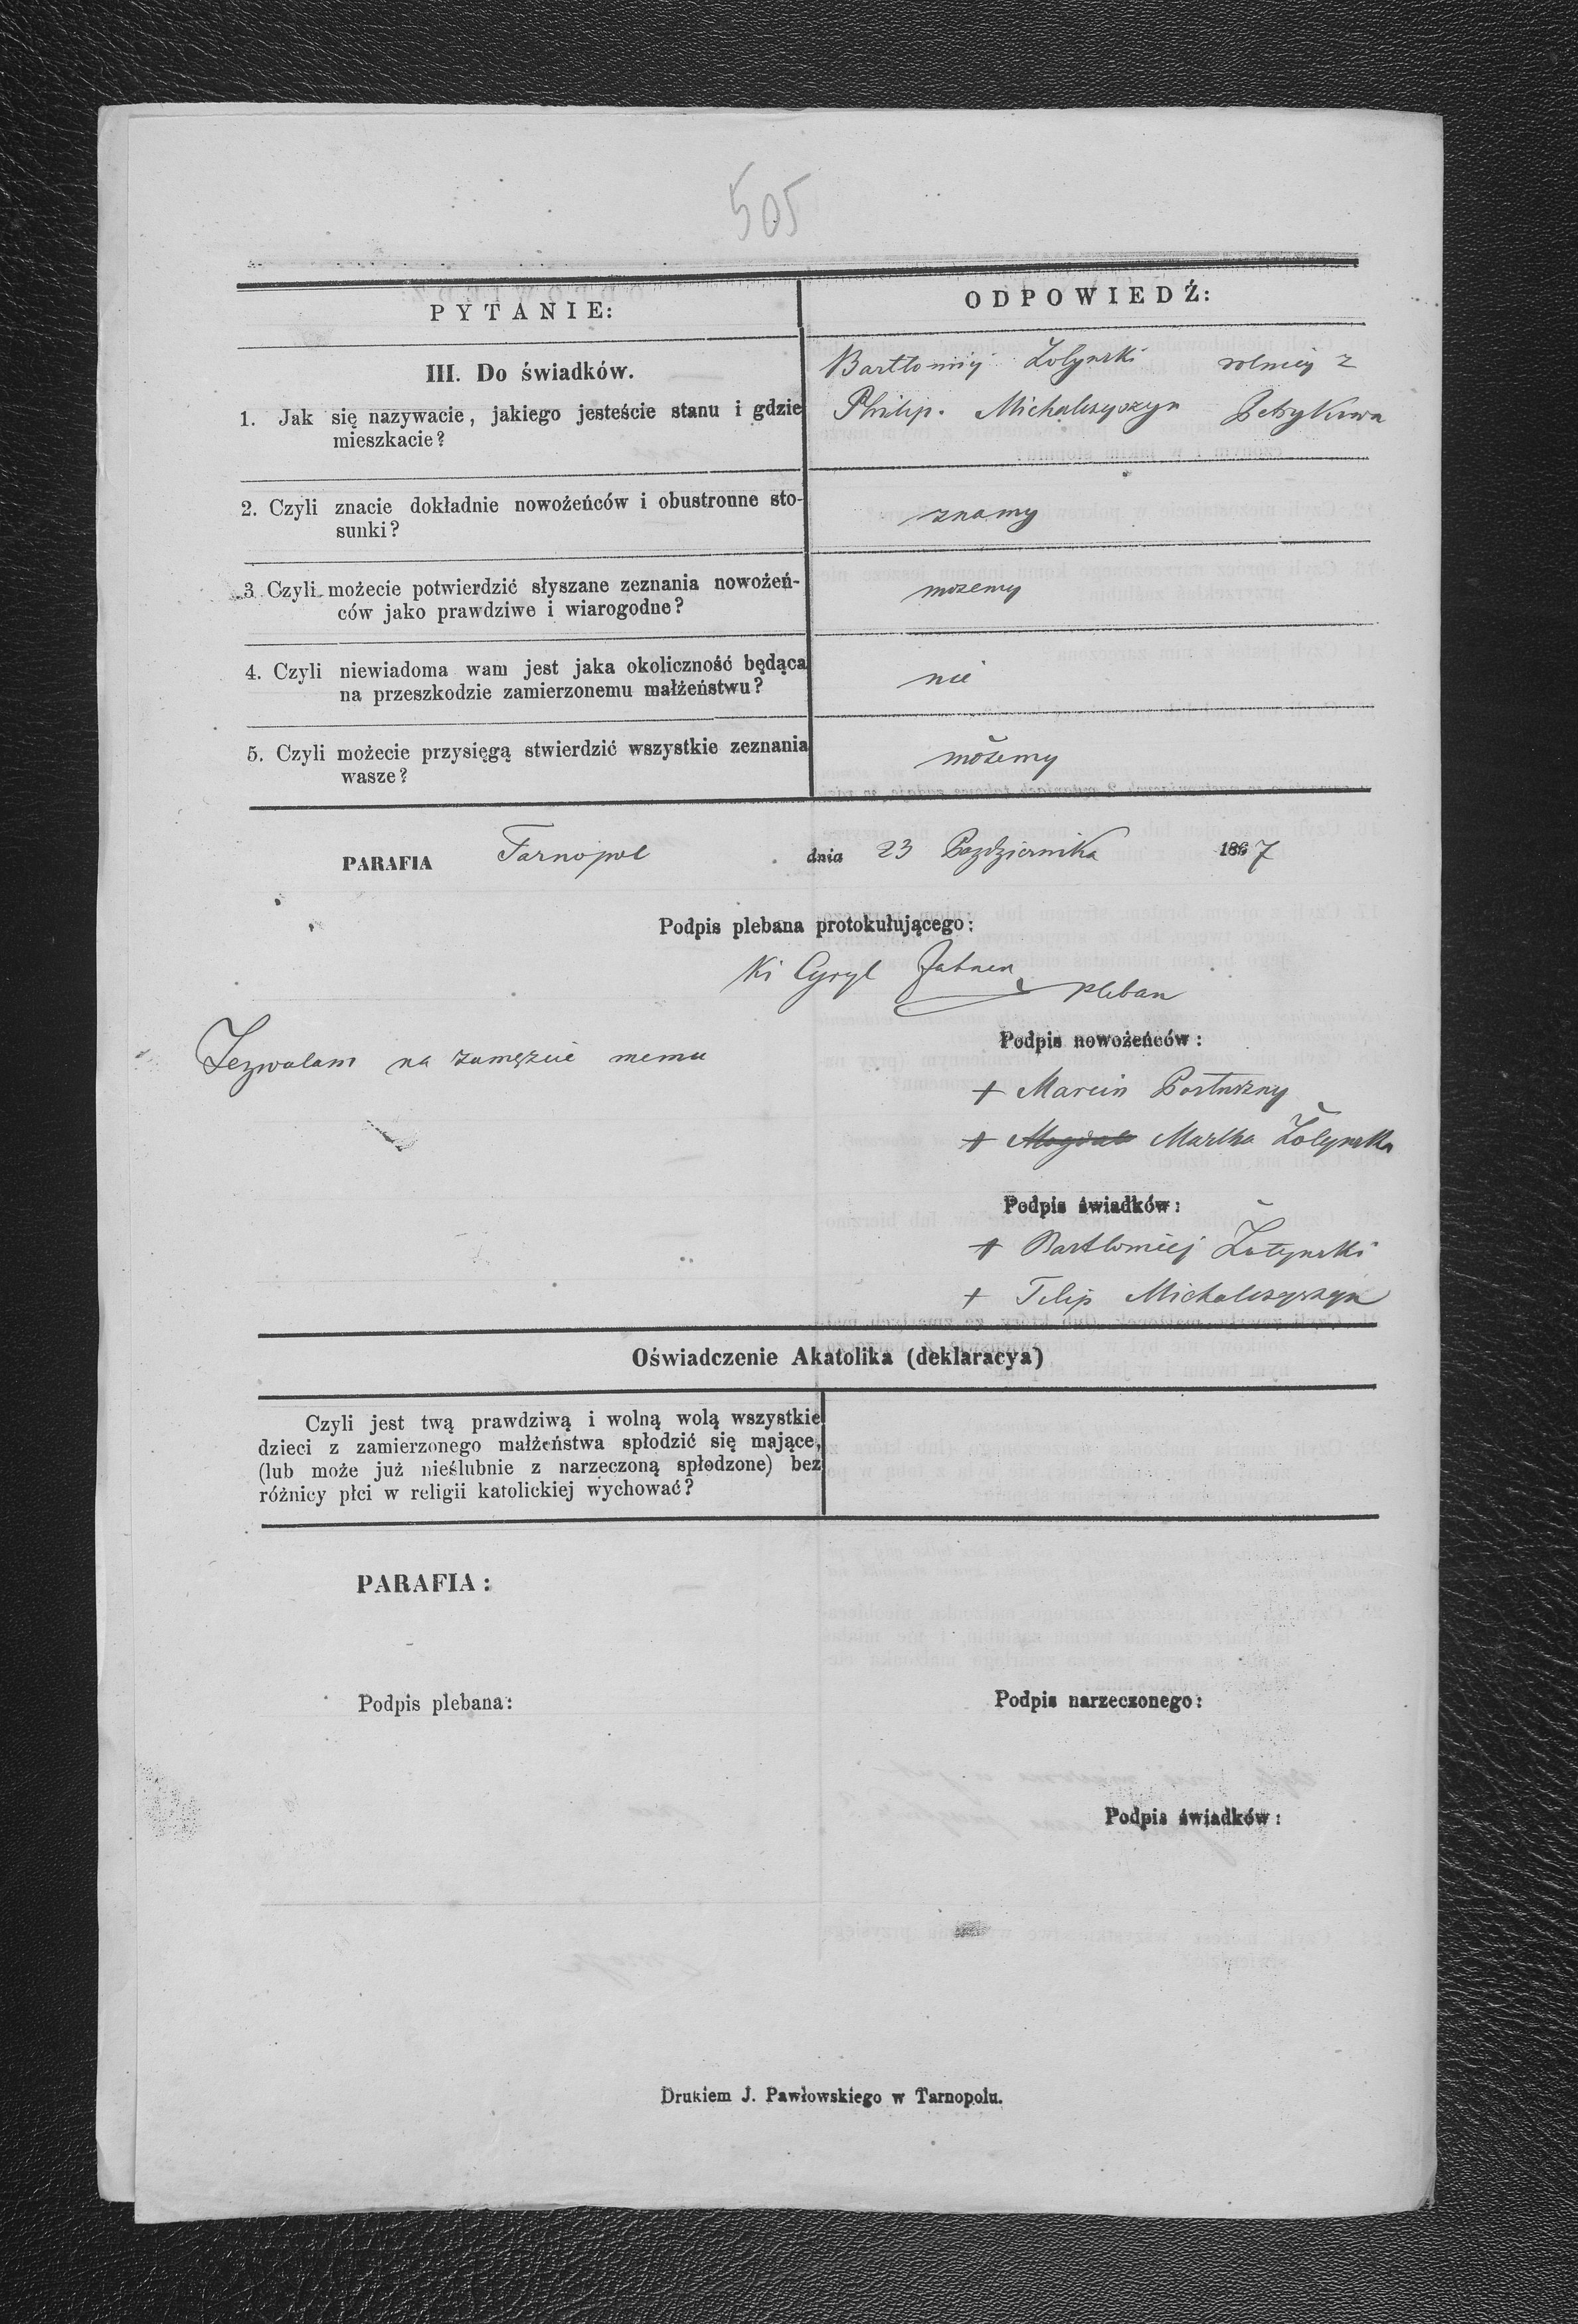 505
PYTANIE:
ODPOWIEDŹ:
III. Do świadków.
1. Jak się nazywacie, jakiego jesteście stanu i gdzie
mieszkacie?
Bartłomiij Żolynski rolnicy z
Philip. Michalczyszyn Petrykowa
2. Czyli znacie dokładnie nowożeńców i obustronne sto-
sunki?
znamy
3 Czyli możecie potwierdzić słyszane zeznania nowożeń-
ców jako prawdziwe i wiarogodne?
możemy
4. Czyli niewiadoma wam jest jaka okoliczność będąca
na przeszkodzie zamierzonemu małżeństwu?
nie
5. Czyli możecie przysięgą stwierdzić wszystkie zeznania
wasze?
możemy
PARAFIA Tarnopol dnia 23 Października 1867
Podpis plebana protokułującego:
Cyryl pleban
Zezwalam na zamęzcie memu
Podpis nowożeńców:
+ Marcin
+ Magdal Martha Żolynska
Podpis świadków:
+ Bartłomiej Żołynski
+ Filip Michalczyszyn
Oświadczenie Akatolika (deklaracya)
Czyli jest twą prawdziwą i wolną wolą wszystkie
dzieci z zamierzonego małżeństwa spłodzić się mające,
(lub może już nieślubnie z narzeczoną spłodzone) bez
różnicy płci w religii katolickiej wychować?
PARAFIA:
Podpis plebana:
Podpis narzeczonego:
Podpis świadków:
Drukiem J. Pawłowskiego w Tarnopolu.